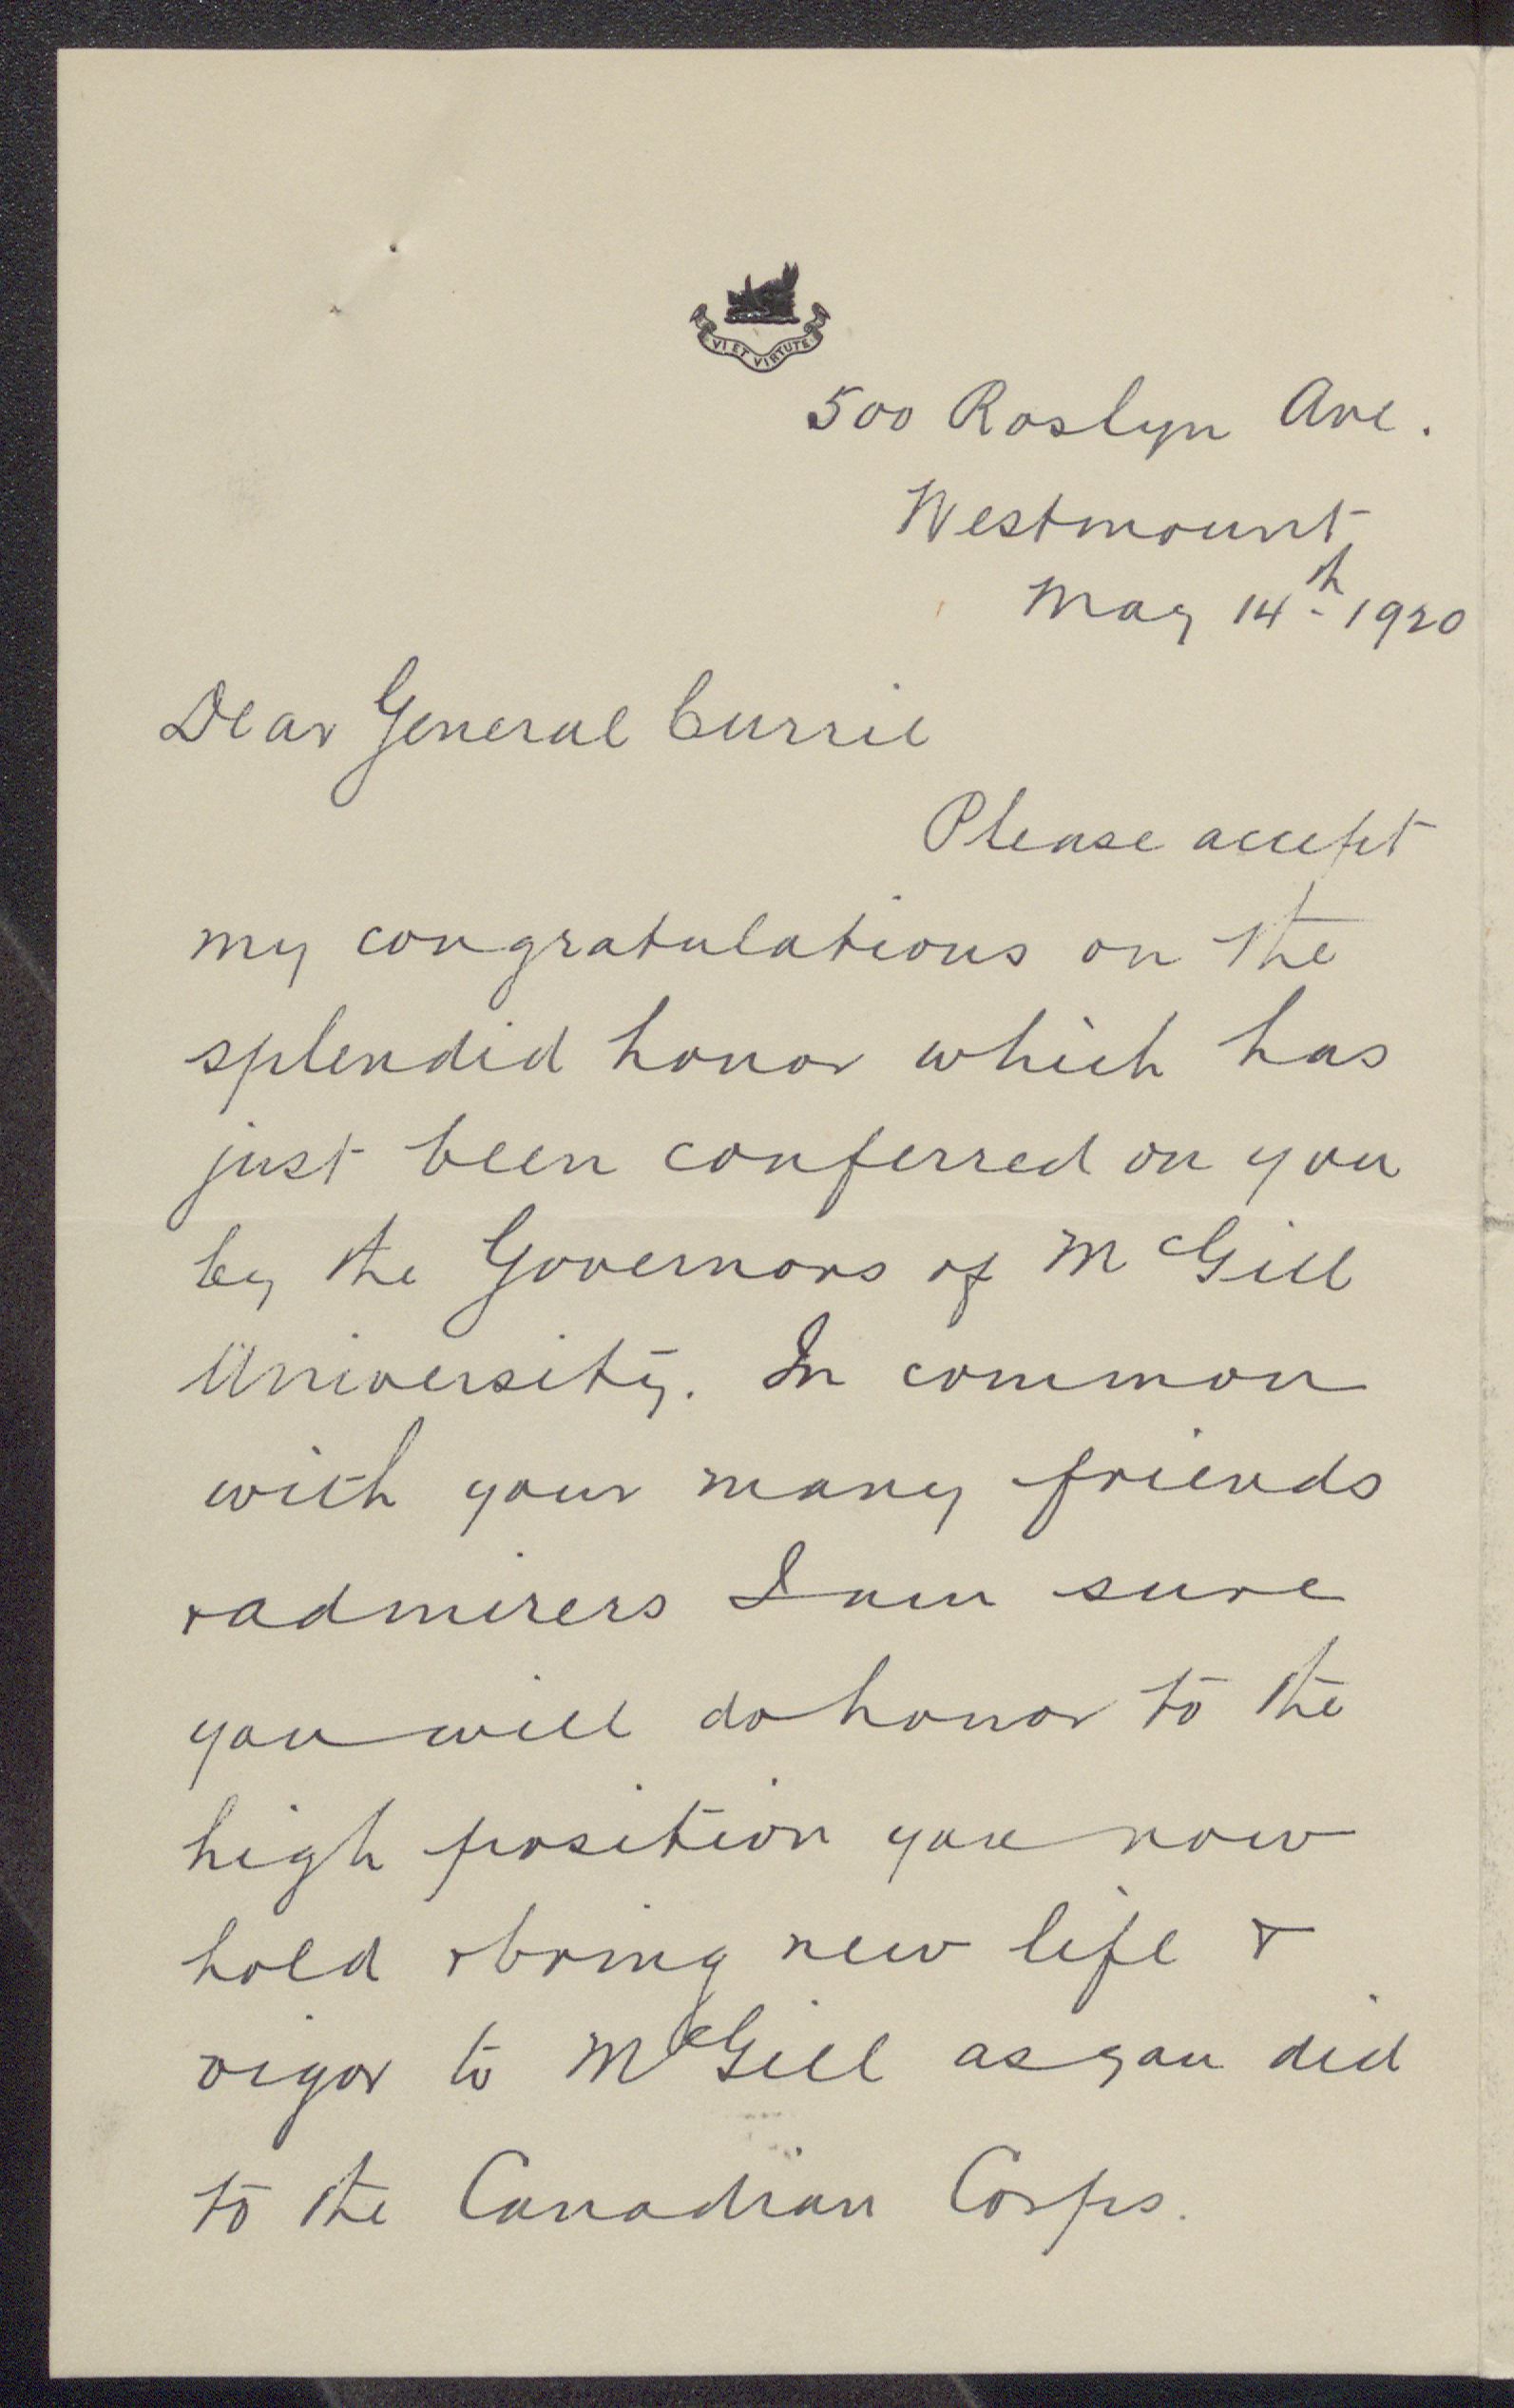 VI ET VIRTUTE
500 Roslyn Ave.
Westmount
May 14th 1920
Dear General Currie
Please accept
my congratulations on the
splendid honor which has
just been conferred on you
by the Governors of McGill
University. In common
with your many friends
& admirers I am sure
you will do honor to the
high position you now
hold & bring new life &
vigor to McGill as you did
to the Canadian Corps.